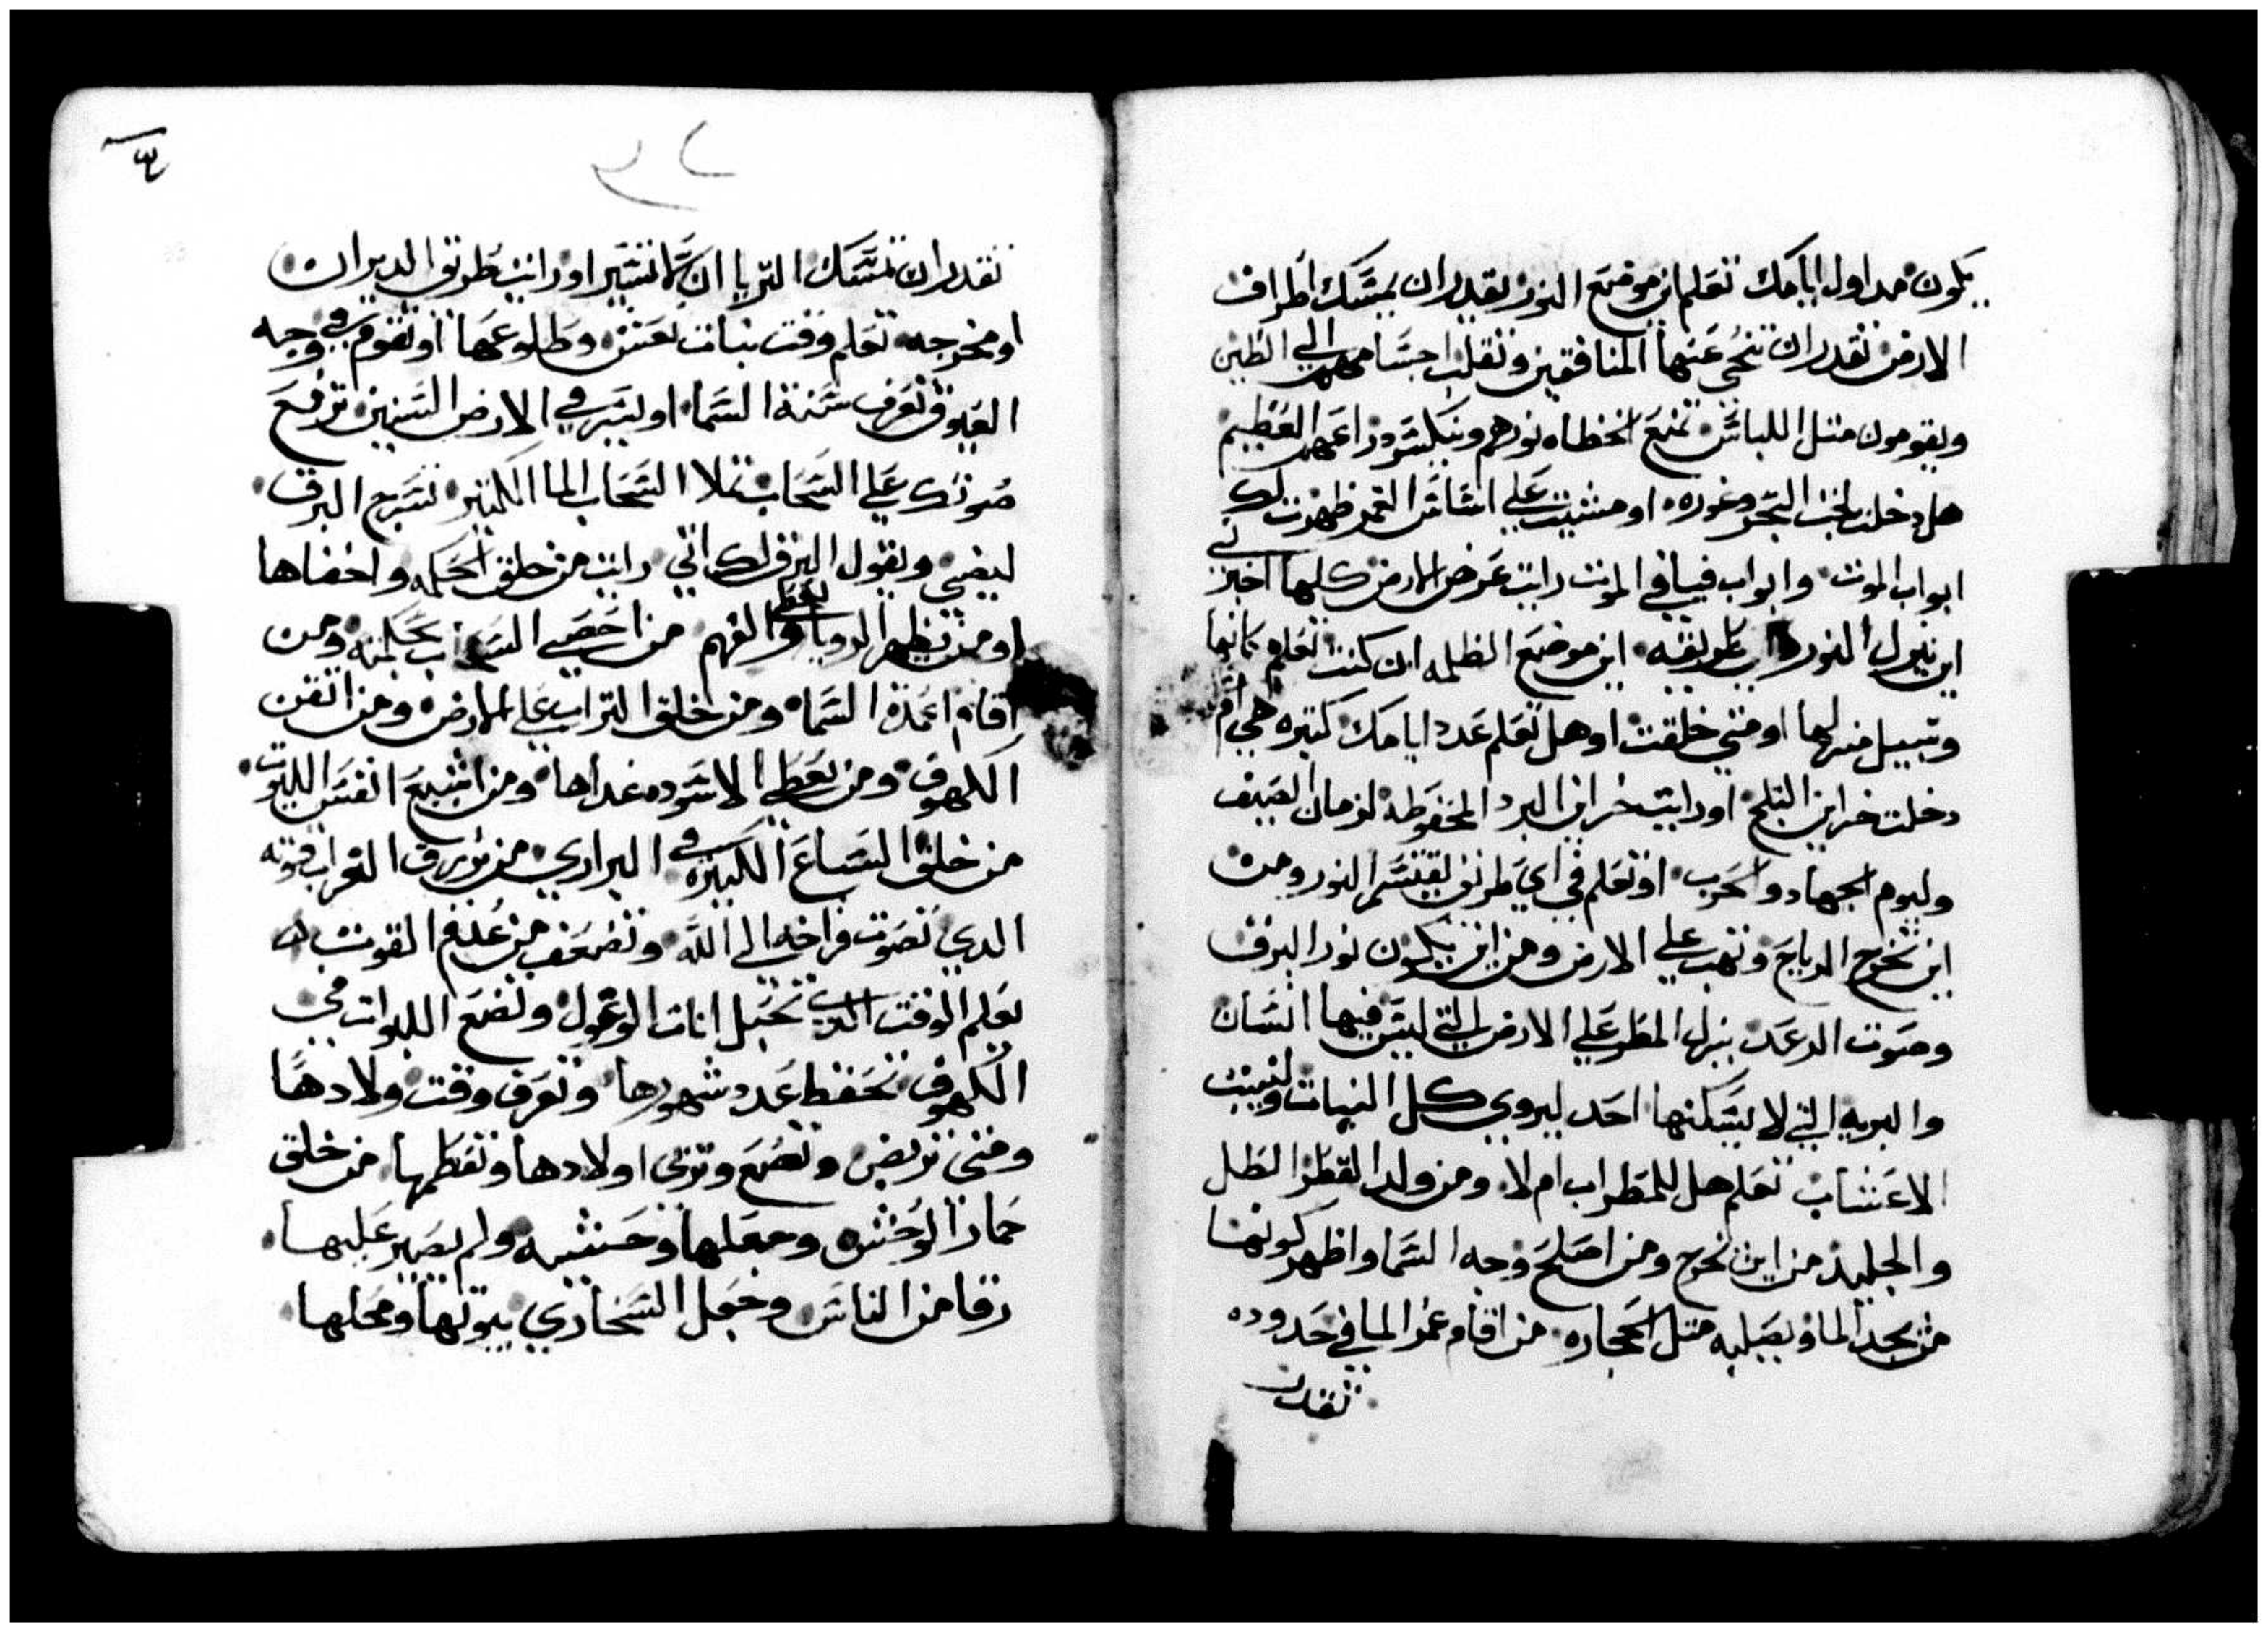 يكون مد اول ايامك تعلم اين موضع النور تقدر ان تمسك اطراف
الارض تقدر ان تنحي عنها المنافقين وتقلب اجسامهم الي الطين
ويقومون متل اللباس تمنع الخطاه نورهم وينكسر دراعهم العظيم
هل دخلت لجب البحر وغوره او مشيت علي اساس الغمر ظهرت لك
ابواب الموت وابواب فيافي الموت رايت عرض الارض كلها اخبرني
اين ينزل النور طريقه اين موضع الظلمه ان كنت تعلم مكانها
وسبيل منزلها او متي خلقت او هل تعلم عدد ايامك كتيره هي ام
دخلت خزاين التلج او رايت خزاين البرد المحفوظه لزمان الصيف
وليوم الجهاد والحرب او تعلم في اي طريق يقتسم النور ومن
اين تخرج الرياح وتهب علي الارض ومن اين يكون نور البرق
وصوت الرعد ينزل المطر علي الارض التي ليس فيها انسان
والبريه التي لا يسكنها احد ليروي كل النبات وينبت
الاعشاب تعلم هل للمطر اب ام لا ومن ولد القطر الطل
والجليد من اين تخرج ومن اصلح وجه السما واظهر كونها
من يجد الما ويصلبه متل الحجاره من اقام عمر الما في حدوده
تقدر
تقدر ان تمسك التريا ان تشير او رايت طريق الدبران
او مخرجه تعلم وقت بنات نعش وطلوعها او تقوم في وجه
العيوق تعرف سنة السما او ليس في الارض السنين ترفع
صوتك علي السحاب تملا السحاب الما الكتير تسرج البرق
ليضي ويقول البرق لك اني رايت من خلق الحكمه واخفاها
او من يظهر الرويا والفهم من احصي السحاب بحكمته ومن
اقام اعمدة السما ومن خلق التراب علي الارض ومن اتقن
الكهوف ومن يعطي الاسوده غداها ومن اشبع انفس الليوت
من خلق السباع الكبيره في البراري من يرزق الغراب قوته
الدي تصوت فراخه الي الله وتضعف من عدم القوت
تعلم الوقت الدي تحبل انات الوعول وتضع اللبوات في
الكهوف تحفظ عدد شهورها وتعرف وقت ولادها
ومتي تربض وتضع وتربي اولادها وتفطمها من خلق
حمار الوحش وجعلها وحشيه ولم يصير عليها
رقا من الناس وجعل السحاري بيوتها ومحلها